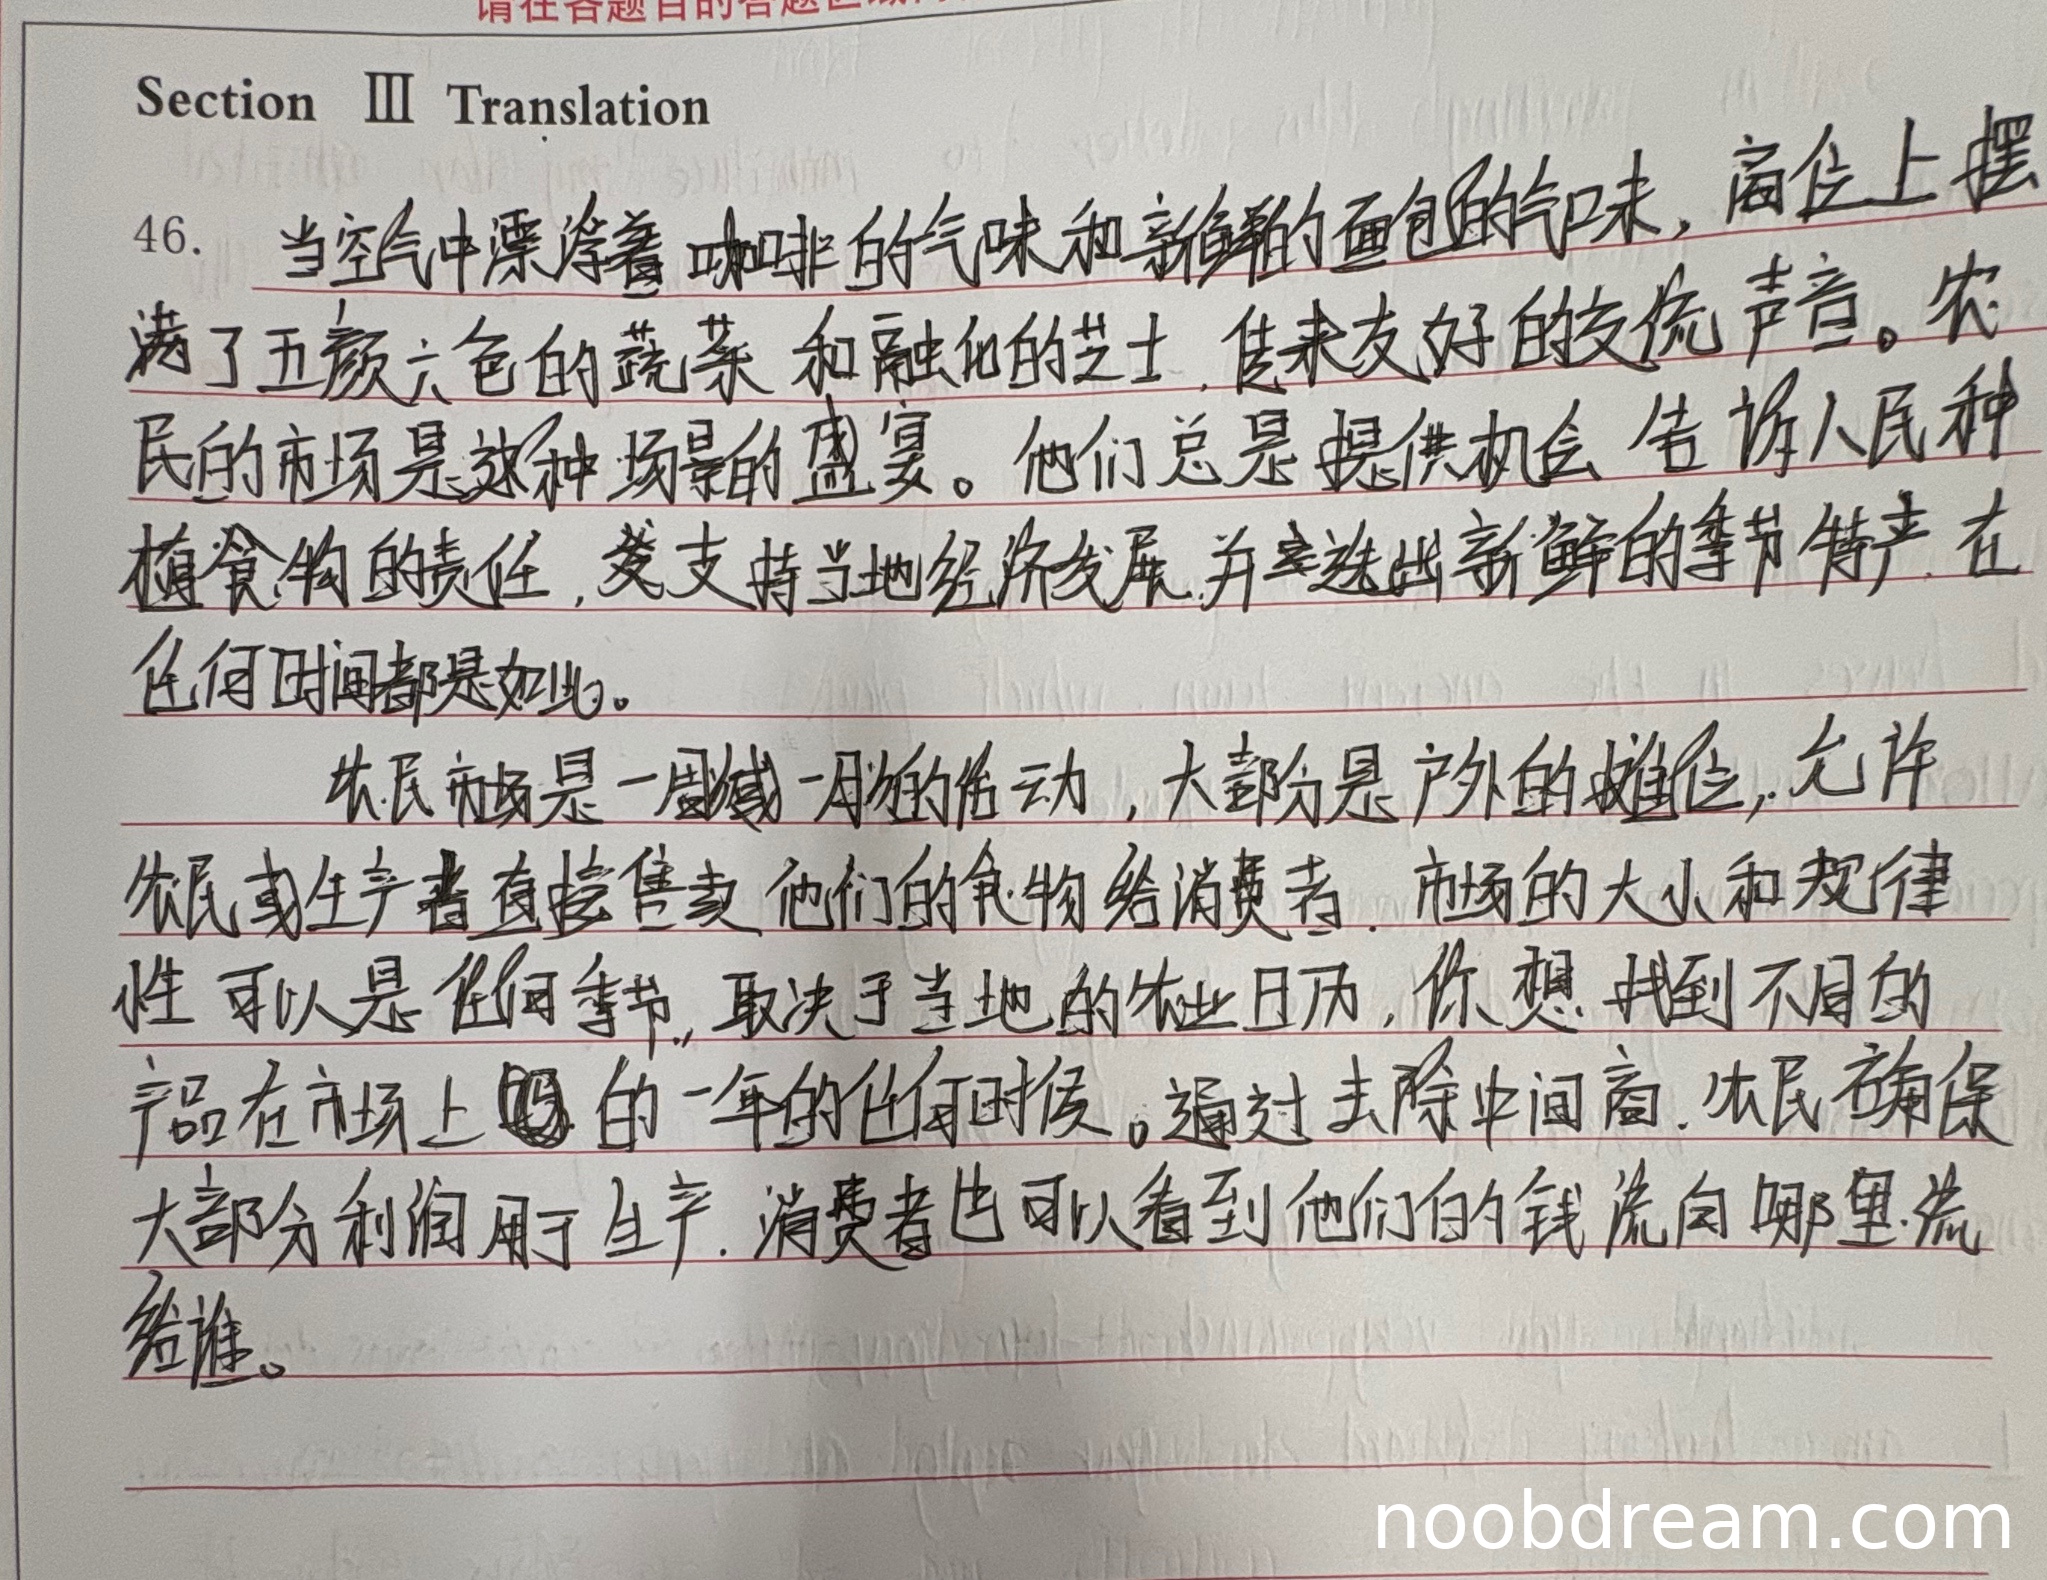 请在各题目的答题区域
Section III Translation
46. 当空气中漂浮着咖啡的气味和新鲜的面包的气味，商位上摆
满了五颜六色的蔬菜和融化的芝士，传来友好的交流声音。农
民的市场是这种场景的盛宴。他们总是提供机会告诉人民种
植食物的责任，发支持当地经济发展，并选出新鲜的季节特产，在
任何时间都是如此。
农民市场是一周或一月次的活动，大部分是户外的摊位，允许
农民或生产者直接售卖他们的食物给消费者，市场的大小和规律
性可以是任何季节，取决于当地的农业日历，你想找到不同的
产品在市场上的一年的任何时候。通过去除中间商，农民确保
大部分利润用于生产，消费者也可以看到他们的钱流向哪里，流
给谁。
noobdream.com